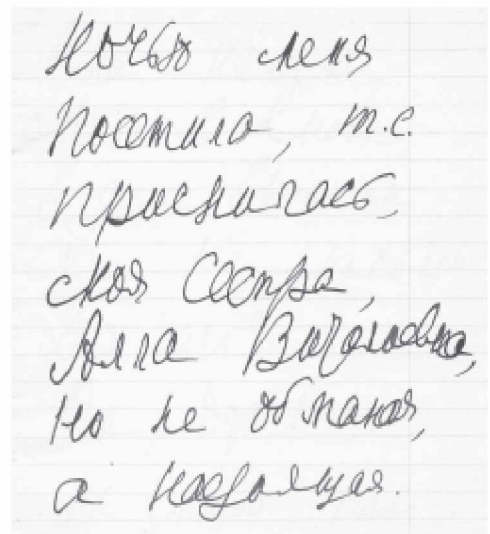 Ночью меня
посетила, т.е.
приснилась,
моя сестра,
Алла
но не обманая,
а настоящая.